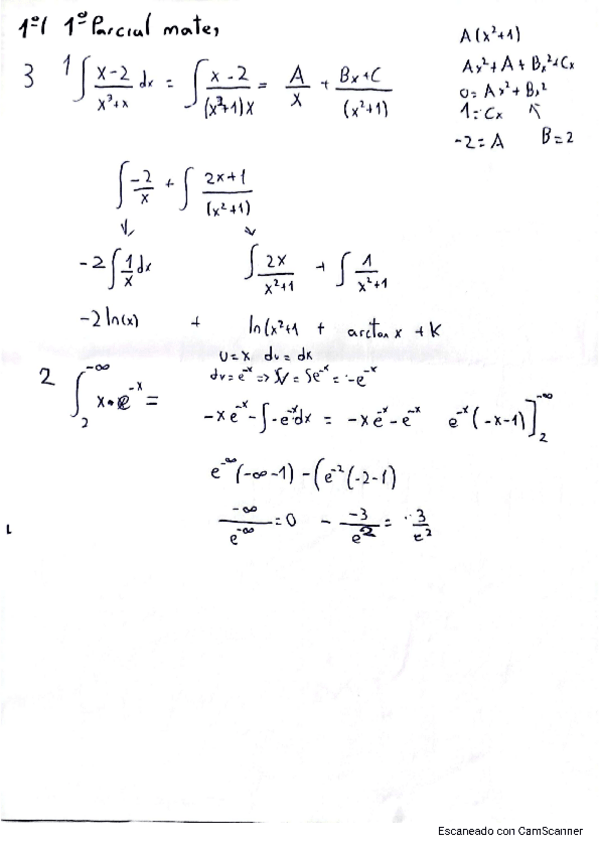 1º/ 1º Parcial mates
3 1 ∫ x-2 / x³+x dx = ∫ x-2 / (x²+1)x = A/x + Bx+C / (x²+1)
A(x²+1)
Ax²+A+Bx²+Cx
0=Ax²+Bx²
1=Cx
-2=A B=2
∫ -2/x + ∫ 2x+1 / (x²+1)
-2∫ 1/x dx ∫ 2x / x²+1 + ∫ 1 / x²+1
-2 ln(x) + ln(x²+1 + arctan x + K
2 ∫₂^-∞ x·e^-x =
u=x du=dx
dv=e^-x => ∫v=∫e^-x=-e^-x
-xe^-x-∫-e^-x dx = -xe^-x-e^-x e^-x(-x-1)]₂^-∞
e^-∞(-∞-1)-(e^-2(-2-1)
-∞ / e^-∞ =0 - -3 / e² = 3 / e²
Escaneado con CamScanner